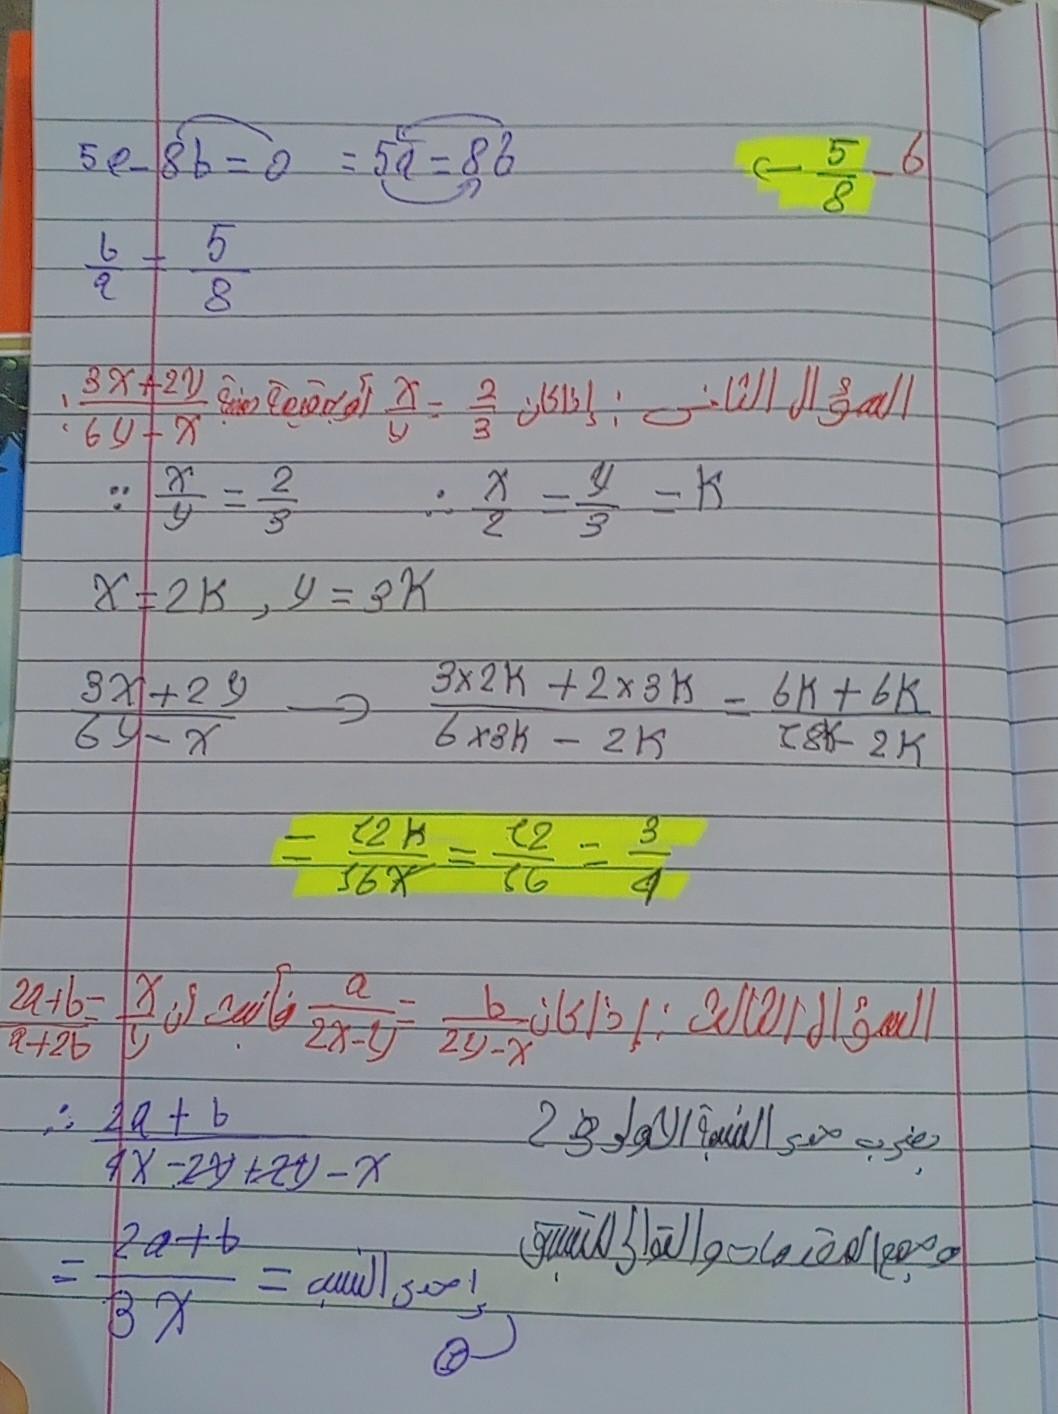 6 - 5/8 ←
5a - 8b = 0 = 5a = 8b
b/a = 5/8
السؤال الثاني : إذا كان x/y = 2/3 أوجد قيمة 3x+2y/6y-x :
∵ x/y = 2/3 ∴ x/2 = y/3 = K
x = 2K , y = 3K
3x+2y/6y-x → 3×2K + 2×3K/6×3K - 2K = 6K + 6K/18K - 2K
= 12K/16K = 12/16 = 3/4
السؤال الثالث : إذا كان b/2y-x = a/2x-y فأثبت أن x/y = 2a+b/a+2b
∴ 2a + b/4x - 2y + 2y - x بضرب حدي النسبة الأولى في 2
وجمع المقدمات والتوالي
= 2a+b/3x = إحدى النسب
①